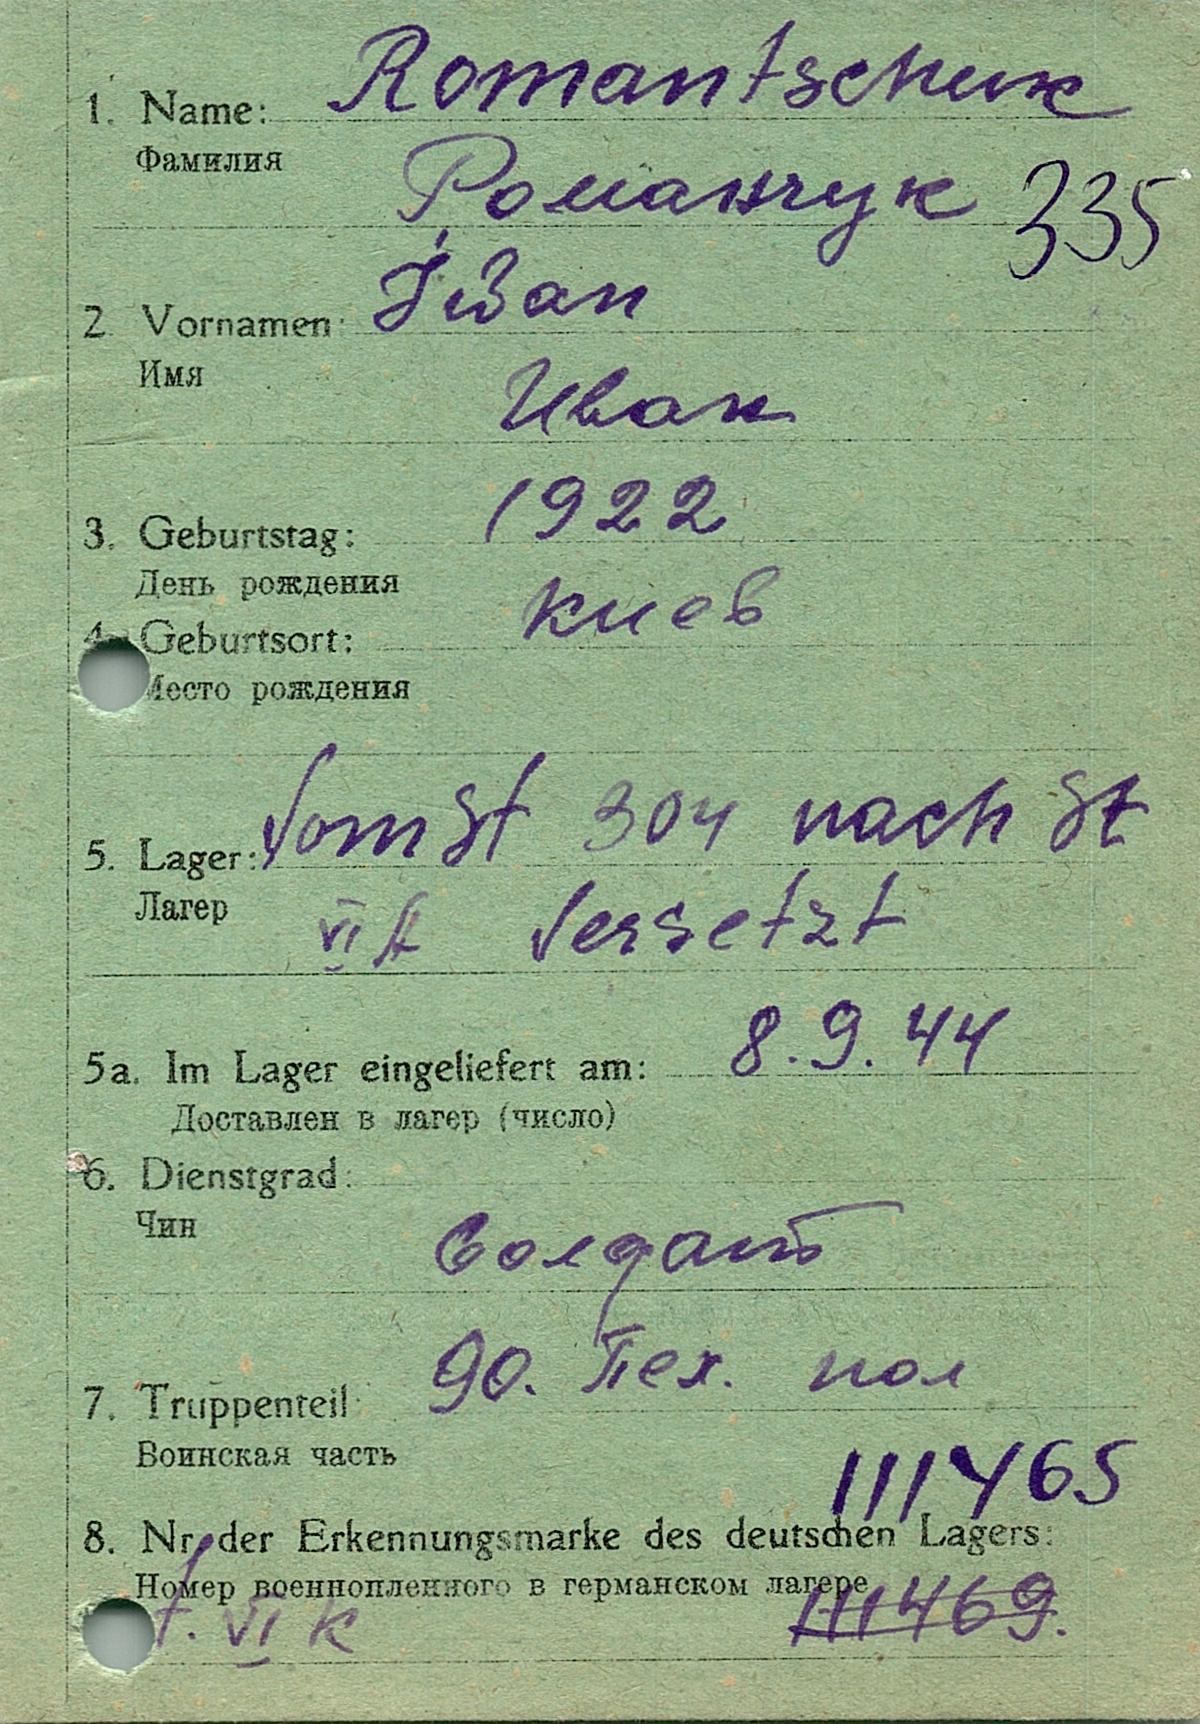 1. Name: Romantschuk
Фамилия
Романчук 335
2. Vornamen: Iwan
Имя
Иван
3. Geburtstag: 1922
День рождения
4. Geburtsort: Киев
Место рождения
5. Lager: Vom St 304 nach St
Лагер
VI K Versetzt
5a. Im Lager eingeliefert am: 8.9.44
Доставлен в лагер (число)
6. Dienstgrad:
Чин
Солдат
7. Truppenteil: 90. Пех. пол
Воинская часть
111465
8. Nr. der Erkennungsmarke des deutschen Lagers:
Номер военнопленного в германском лагере
t. VI K 111469.